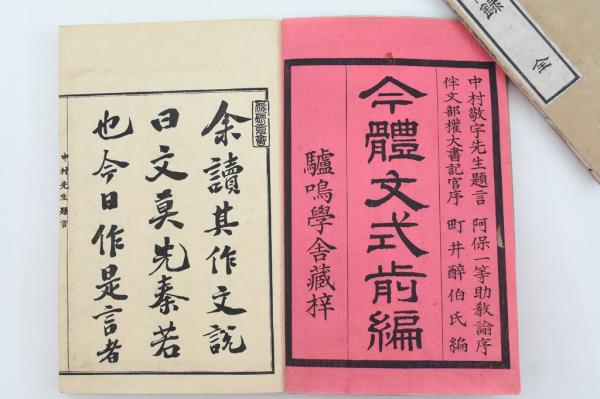 中村敬宇先生題言 阿保一等助教諭序
伴文部權大書記官序 町井醉伯氏編
今體文式前編
驢鳴學舍藏梓
余讀其作文説
曰文莫先秦若
也今日作是言者
中村先生題言
錄 全